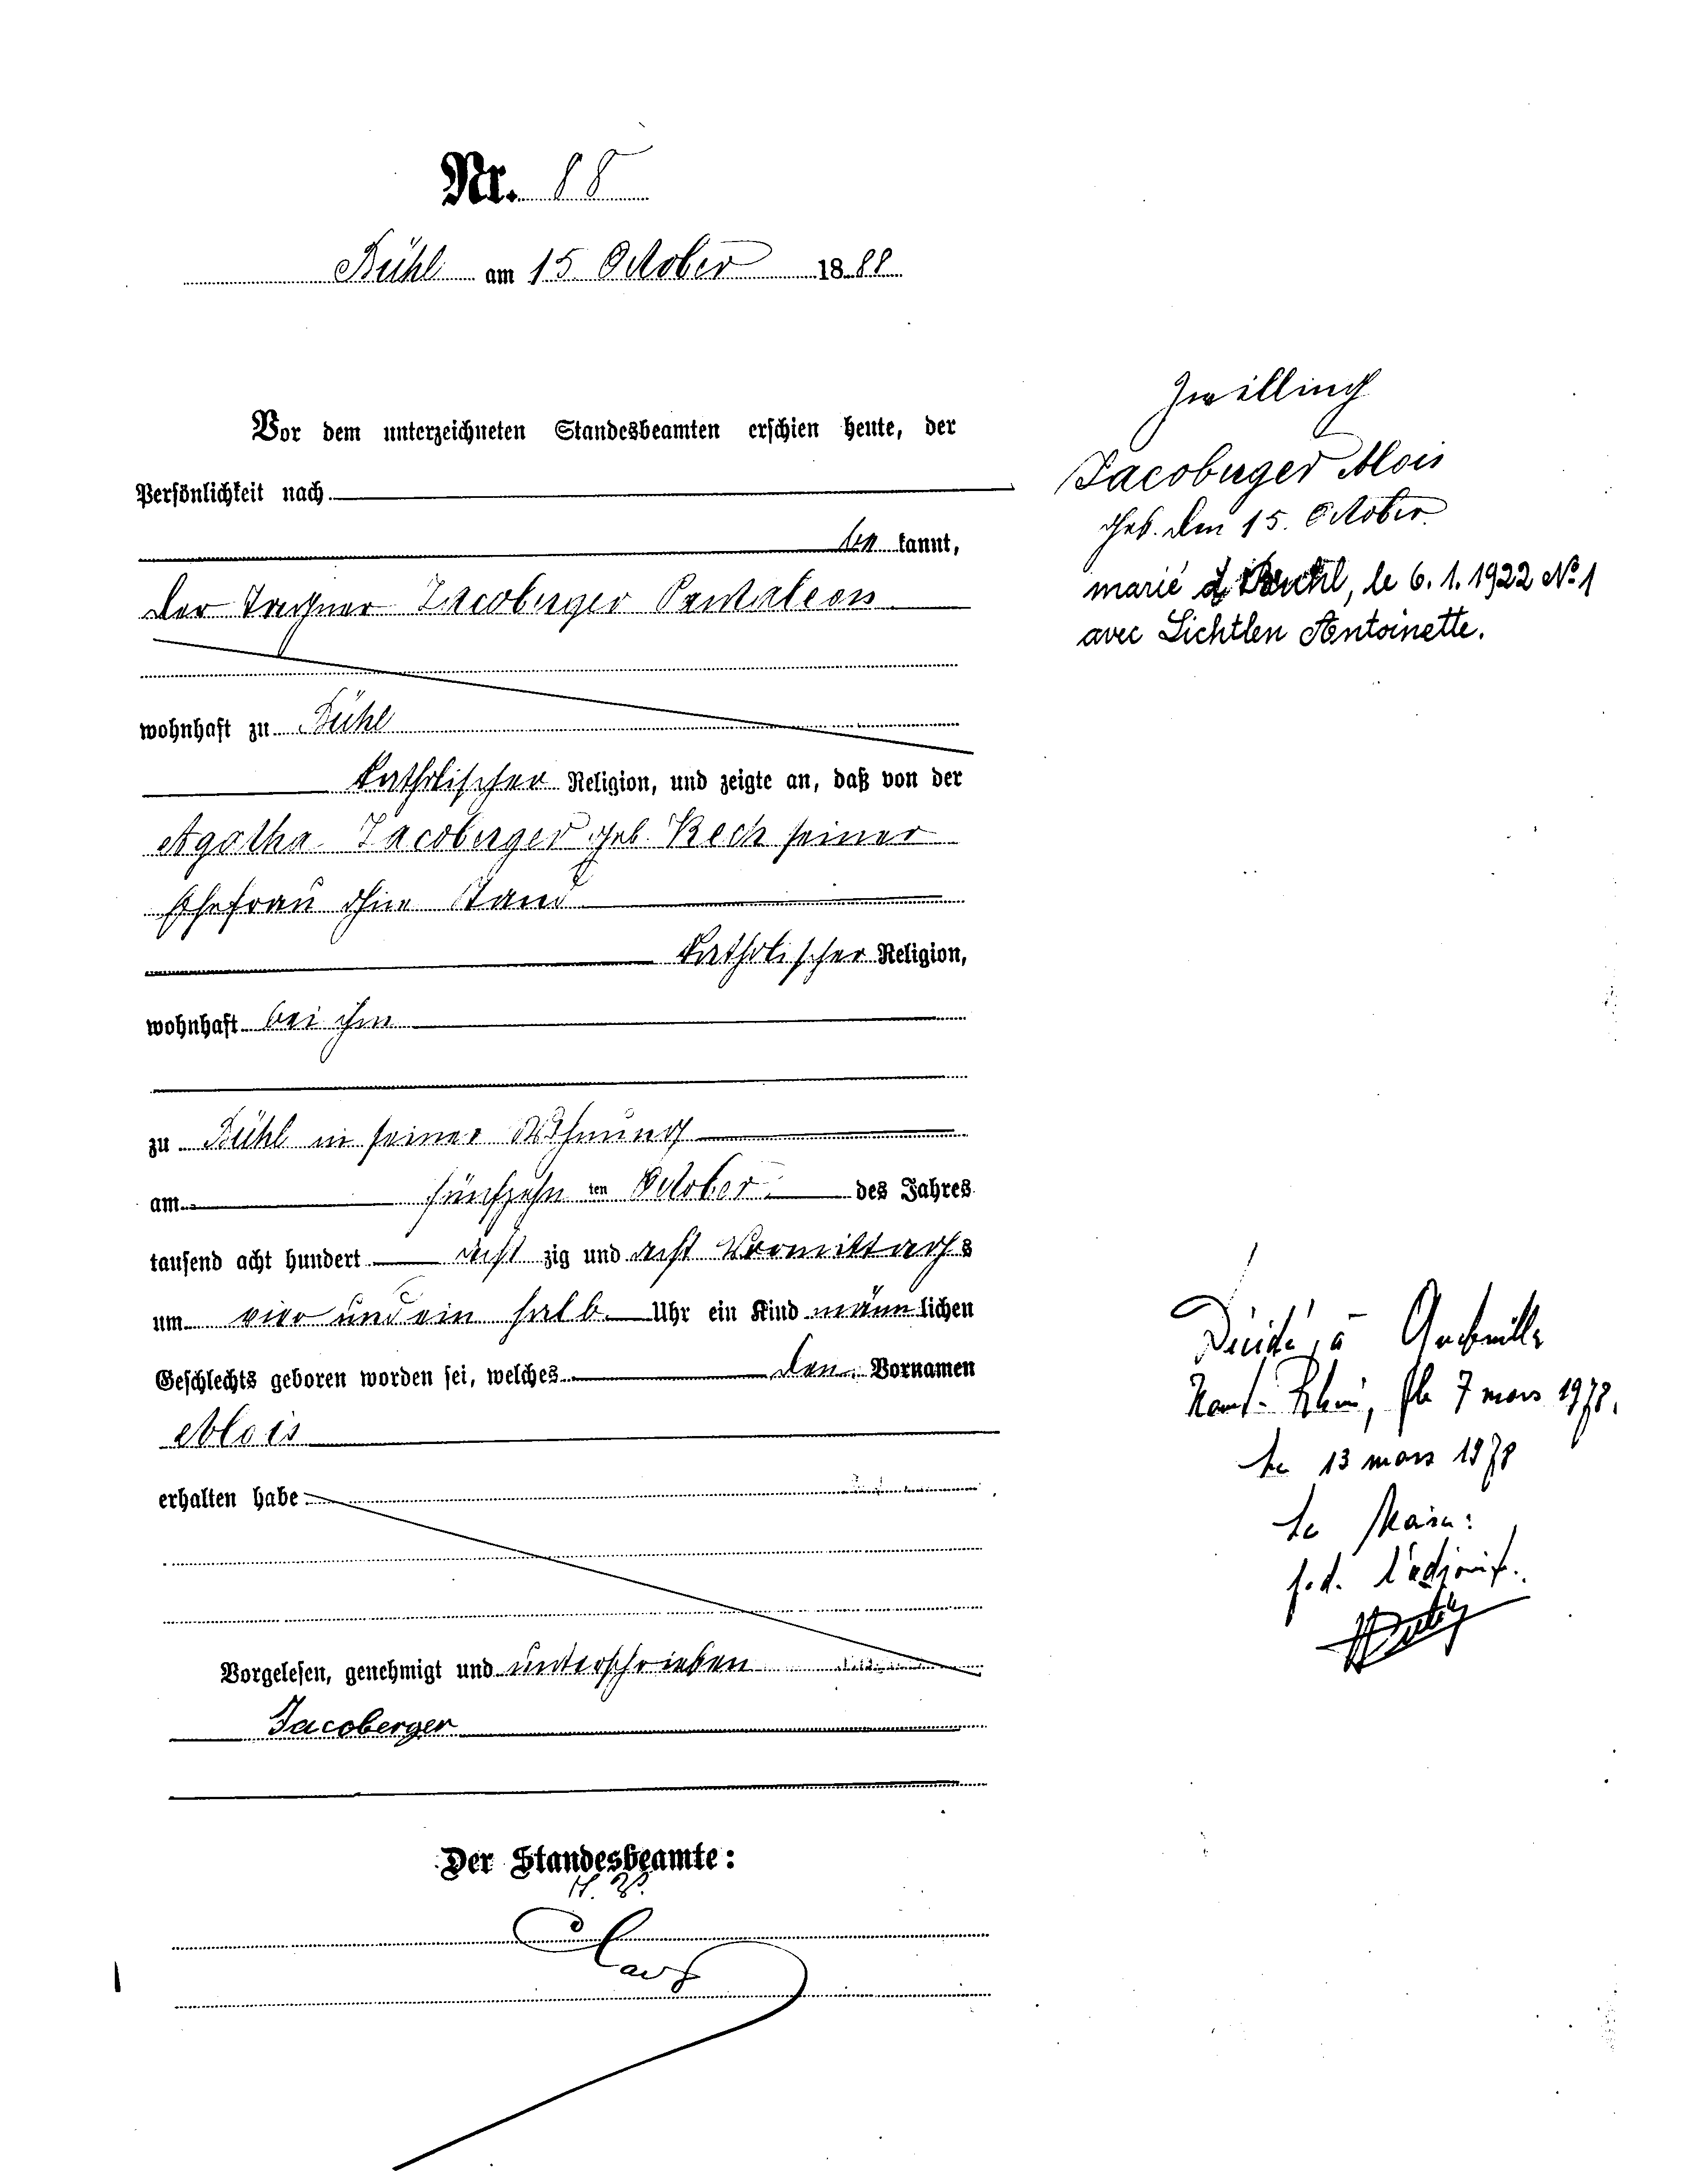 Nr. 88
Bühl am 15. October 1888
Vor dem unterzeichneten Standesbeamten erschien heute, der
Persönlichkeit nach
be kannt,
der Tagner Jacoberger Pantaleon
wohnhaft zu Bühl
katholischer Religion, und zeigte an, daß von der
Agatha Jacoberger geb. Rech seiner
Ehefrau ohne Stand
katholischer Religion,
wohnhaft bei ihm
zu Bühl in seiner Wohnung
am fünfzehn ten October des Jahres
tausend acht hundert acht zig und acht Vormittags
um vier und ein halb Uhr ein Kind männlichen
Geschlechts geboren worden sei, welches den Vornamen
Alois
erhalten habe
Vorgelesen, genehmigt und unterschrieben
Jacoberger
Der Standesbeamte:
Zwilling
Jacoberger Alois
geb. den 15. October
marié à Buhl, le 6. 1. 1922 No 1
avec Lichtlen Antoinette.
Décédé à Guebwiller
Haut-Rhin, le 7 mars 1978.
Le 13 mars 1978
Le Maire:
p.d. l'adjoint.